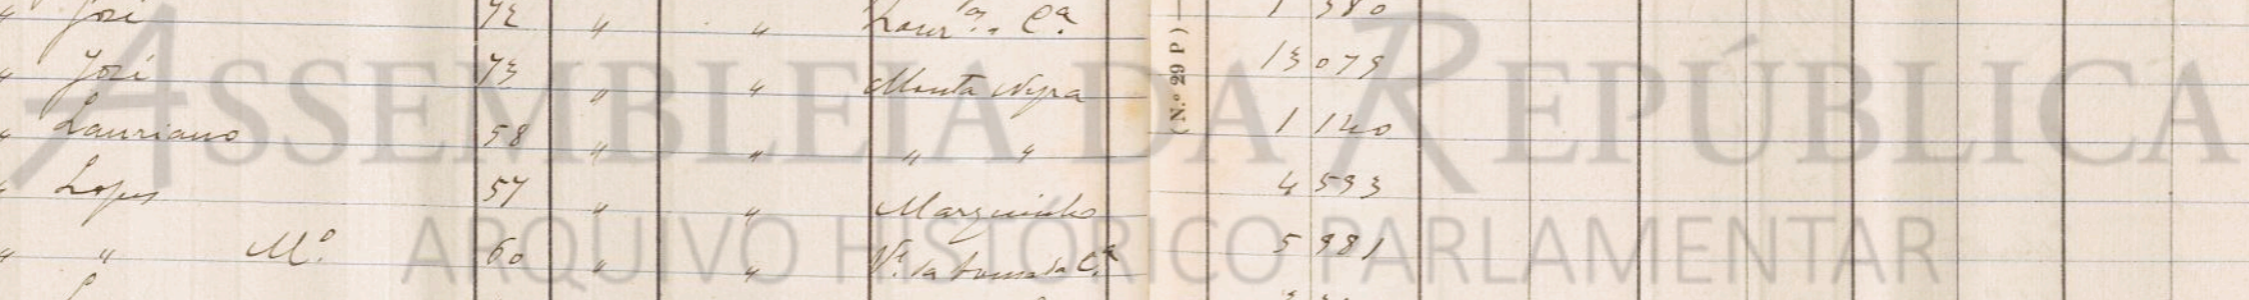 " José 72 " " Lour.ço C.ª 1 380
" José 73 " " Monta Negra 13 079
" Lauriano 58 " " " " 1 140
" Lopes 57 " " Marguinho 4 593
" " M.º 60 " " V.ª da C.ª 5 981
(N.º 29 P)
ASSEMBLEIA DA REPÚBLICA
ARQUIVO HISTÓRICO PARLAMENTAR